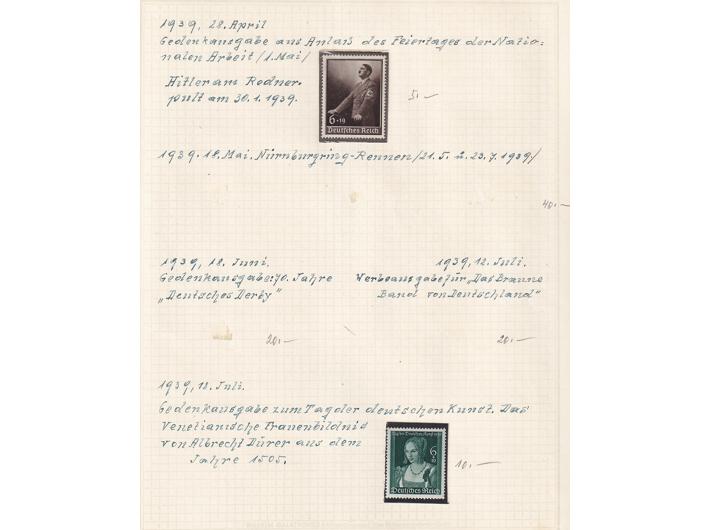 1939, 28. April
Gedenkausgabe aus Anlaß des Feiertages der Natio=
nalen Arbeit /1. Mai/
Hitler am Redner-
pult am 30.1.1939.
6+19
Deutsches Reich
5.–
1939. 18. Mai. Nürnburgring-Rennen /21.5. u. 23.7.1939./
40.–
1939, 18. Juni.
Gedenkausgabe: 70. Jahre
„Deutsches Derby"
20.–
1939, 12. Juli.
Werbeausgabe für „Das Braune
Band von Deutschland"
20.–
1939, 12. Juli.
Gedenkausgabe zum Tag der deutschen Kunst. Das
Venetianische Frauenbildnis
von Albrecht Dürer aus dem
Jahre 1505.
Deutsches Reich
10.–